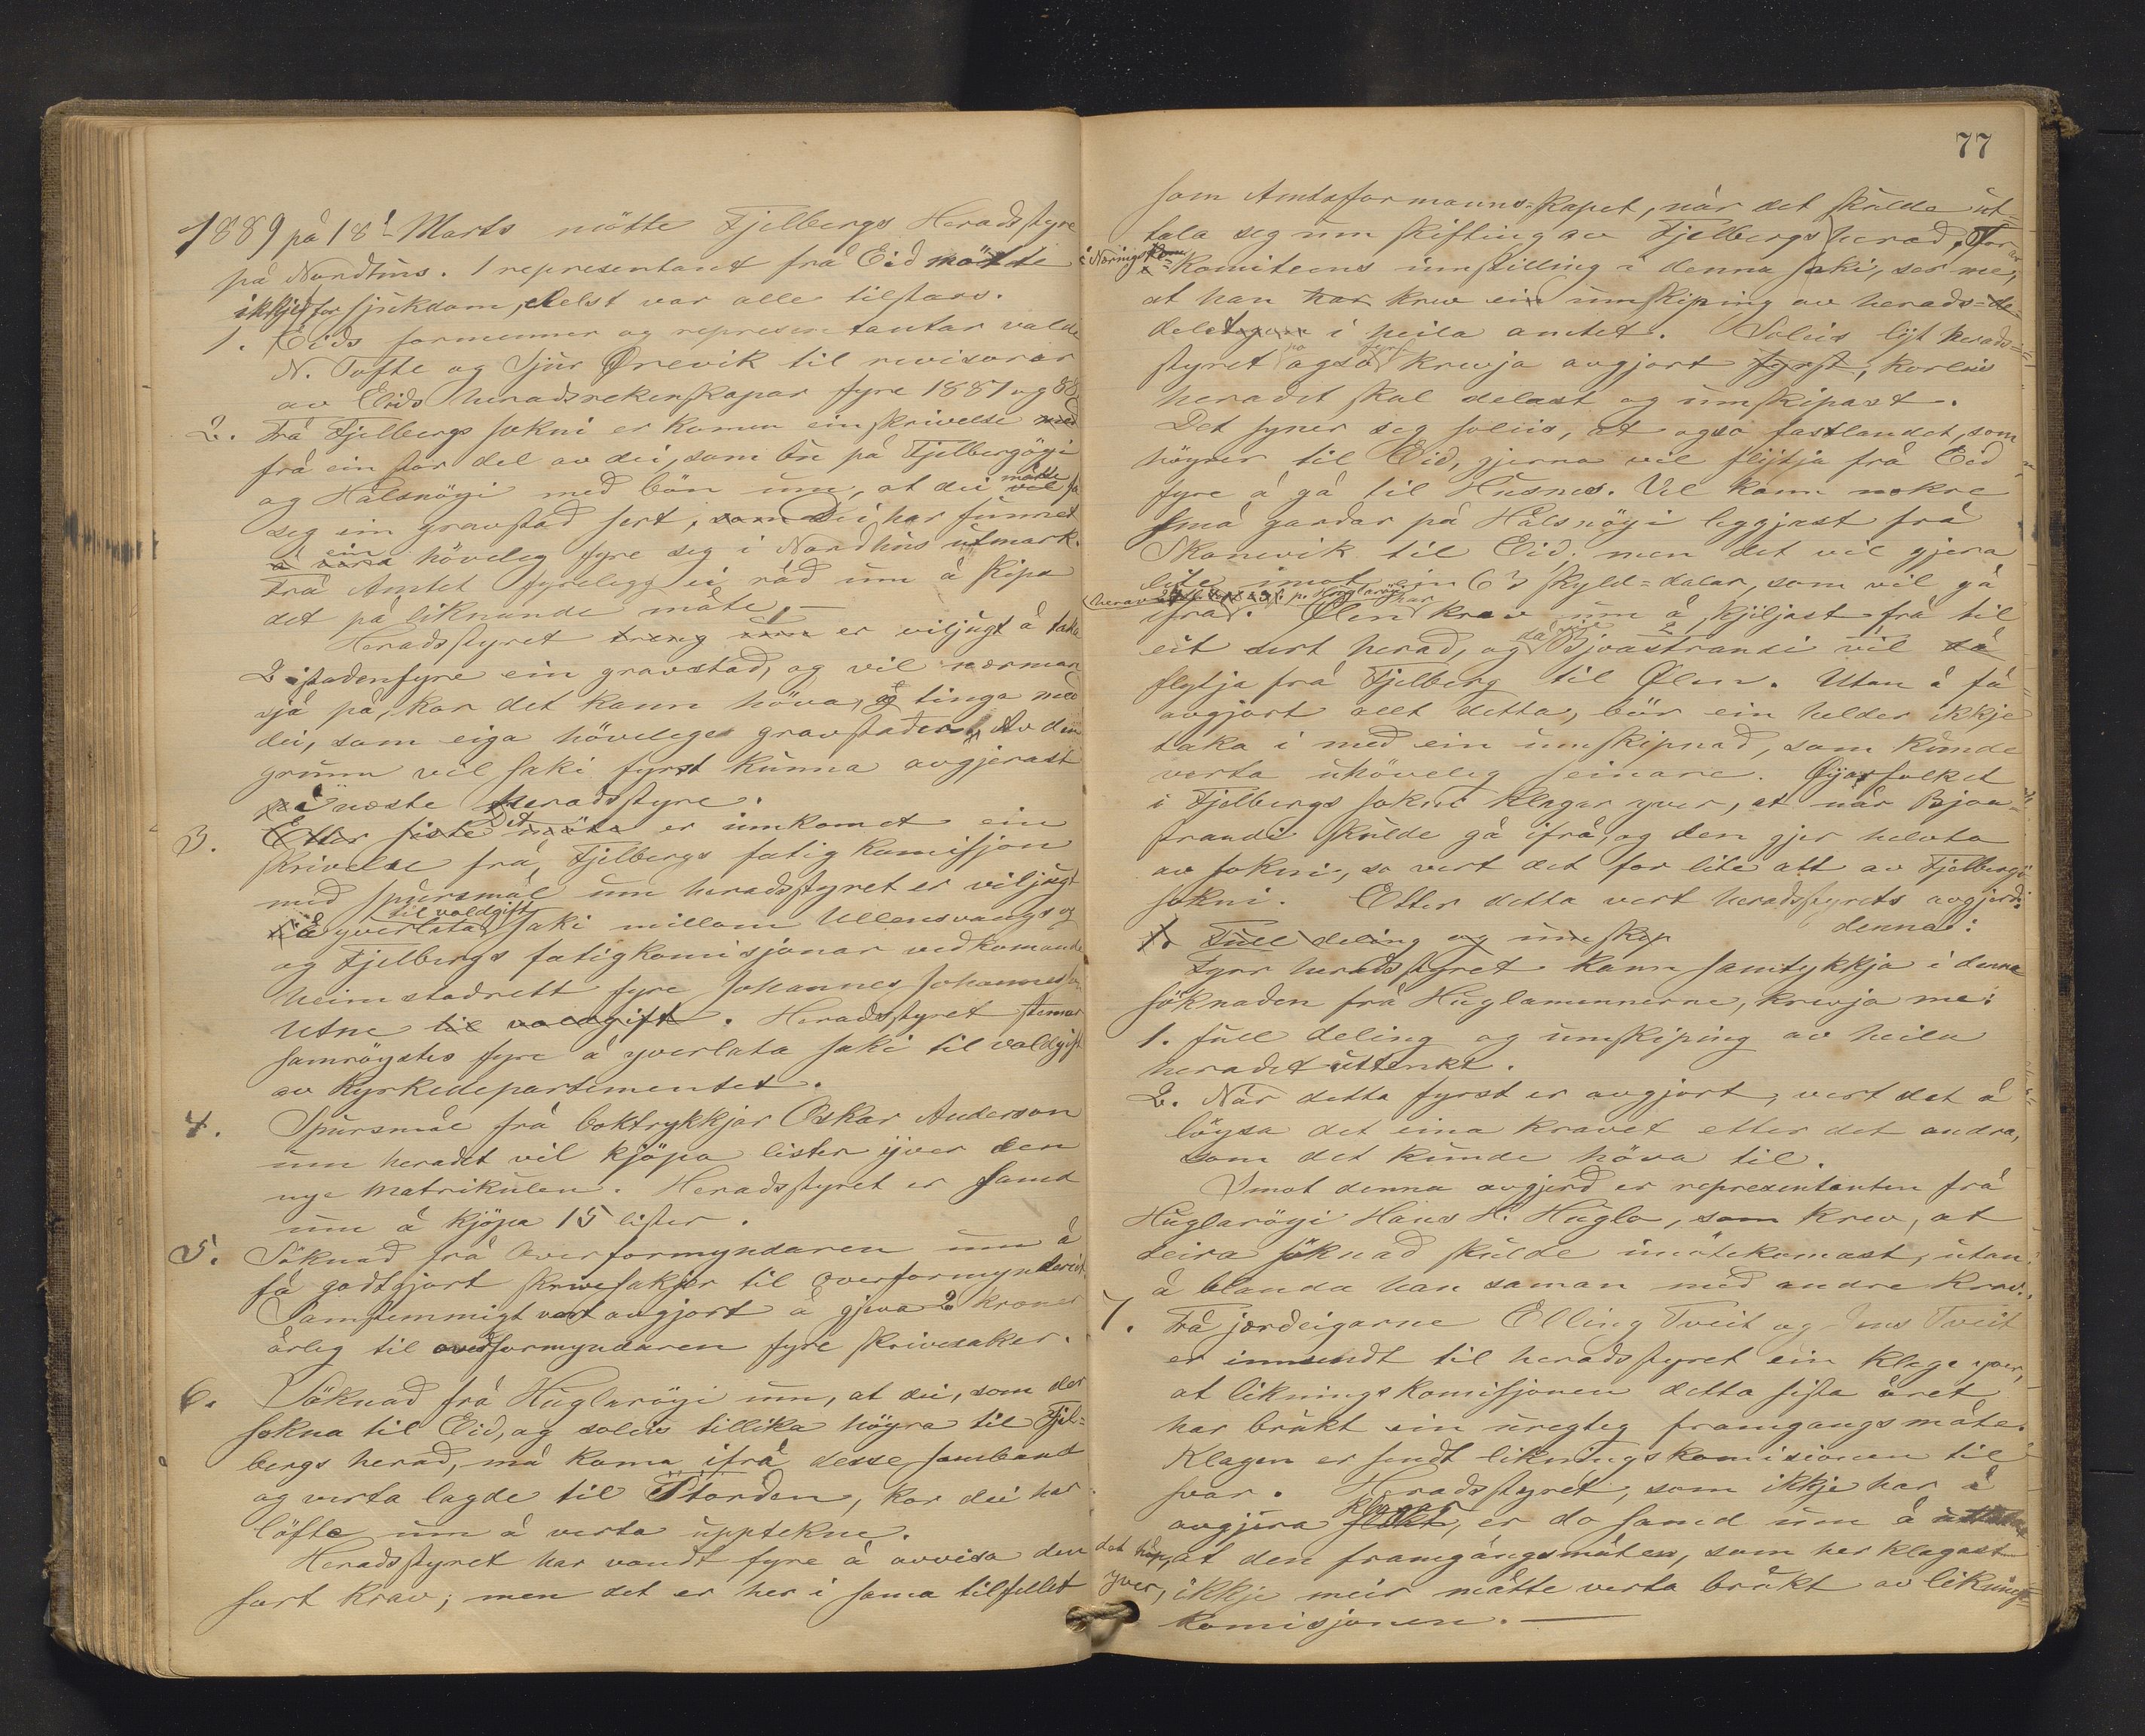 1889 på 18d Marts mötte Fjelbergs Heradstyre
på Nordhus. 1 representant frå Eid mötte
ikkje for sjukdom, elelst var alle tilstaes.
1. Eids formenner og representantar valde
N. Tofte og Sjur Ørevik til revisorar
av Eids heradsrekenskapar fyre 1887 og 88
2. Frå Fjelbergs sokni er komen ein skrivelse med
frå ein stor del av dei, som bu på Fjelbergöyi
og Halsnöyi med bön um, at dei vil måtte få
seg ein gravstad sert, som dei har funnet
å vera ein höveleg fyre seg i Nordhus utmark.
Frå Amtet fyrelegg ei råd um å skipa
det på liknande måte. —
Heradsstyret treng um er viljugt å taka
2 istadenfyre ein gravstad, og vil nærmar
sjå på, kor det kann höva, og tinga med
dei, som eiga hövelege gravstader. Av den
grunn vil saki fyrst kunna avgjerast
på i næste Heradsstyre.
3. Etter siste möte Det er innkomet ein
skrivelse frå Fjelbergs fatigkomisjon
med spursmål um heradsstyret er viljugt
til å yverlata til voldgift saki millom Ullensvangs og
og Fjelbergs fatigkomisjonar vedkomande
heimstadrett fyre Johannes Johannesson
Utne til voldgift. Heradsstyret stemar
samröystes fyre å yverlata saki til voldgift
av Kyrkedepartementet.
4. Spursmål frå boktrykkjar Oskar Anderson
um heradet vil kjöpa lister yver den
nye matrikulen. Heradsstyret er samd
um å kjöpa 15 lister.
5. Söknad frå Overformyndaren um å
få godtgjort skrivesakjer til overformynderiet.
Samstemmigt vart avgjort å gjeva 2 kroner
årleg til overformyndaren fyre skrivesaker.
6. Söknad frå Huglaröyi um, at dei, som der
sokna til Eid, og soleis tillika höyra til Fjel-
bergs herad, må koma ifrå desse samband
og verta lagde til Storden, kor dei har
löfte um å verta upptekne.
Heradsstyret har vandt fyre å avvisa den
sort krav; men det er her i sama tilfellet
77
som Amtsformanns-skapet, når det skulde ut-
tala seg um skifting av Fjelbergs herad. Før
i Nærings Komiteens innstilling i denna saki, ser me,
at han har krev ein umskiping av herads-de
delet i heila amtet. Soleis lyt herads-
styret også på fyrst krevja avgjort fyrst, korleis
heradet skal delast og umskipast.
Det syner seg soleis, at også fastlandet, som
höyrer til Eid, gjerna vil flytja frå Eid
fyre å gå til Husnes. Vel kann nokre
små gardar på Halsnöyi leggjast frå
Skonevik til Eid, men det vil gjera
lite imot ein 63 skyld-dalar, som vil gå
ifrå. Ølen har krev um å skiljast frå til
eit sert herad, og då vil Bjoastrandi vil då
flytja frå Fjelberg til Ølen. Utan å få
avgjort allt detta, bör ein helder ikkje
taka i med ein umskipnad, som kunde
verta uhöveleg seinare. Øyarfolket
i Fjelbergs sokni klagar yver, at når Bjoa-
strandi skulde gå ifrå, og den gjer helvta
av sokni, so vert det for lite att av Fjelbergs
sokni. Etter detta vert heradsstyrets avgjerd
denna:
1. Full deling og umskip
Fyrr heradsstyret kann samtykkja i denna
söknaden frå Huglamennerne, krevja me:
1. full deling og umskiping av heila
heradet uttenkt.
2. Når detta fyrst er avgjort, vert det å
löysa det eina kravet etter det andra,
som det kunde höva til.
Imot denna avgjerd er representanten frå
Huglaröyi Hans H. Hugla, som krev, at
deira söknad skulde imötekomast, utan
å blanda han saman med andre krav.
7. Frå jordeigarne Elling Tveit og Jens Tveit
er innsendt til heradsstyret ein klage yver,
at likningskomisjonen detta sista året
har brukt ein uregteg framgangsmåte.
Klagen er sendt likningskomisionen til
svar. Heradsstyret, som ikkje har å
avgjera slikt klagar, er do samd um å uttala
det håp, at den framgangsmåten, som her klagast
yver, ikkje meir måtte verta brukt av liknings-
komisjonen. —